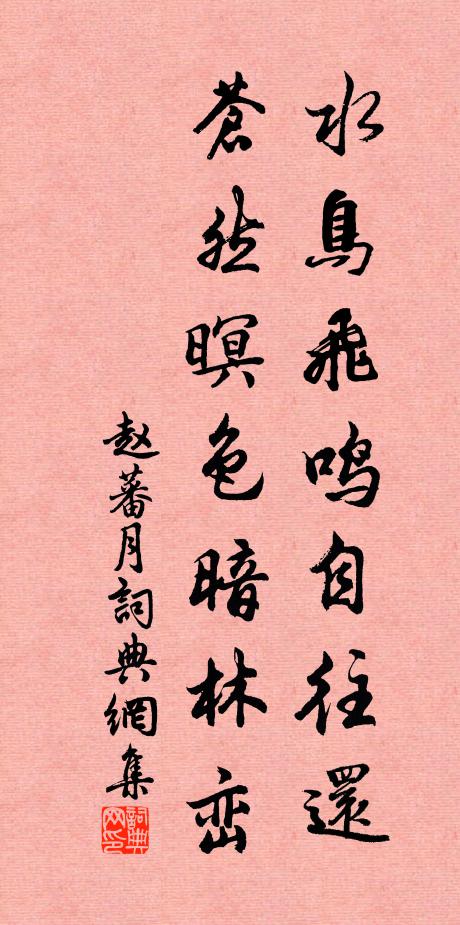 水鳥飛鳴自往還
蒼然暝色暗林峦
赵蕃月詞典網集
詞典网印